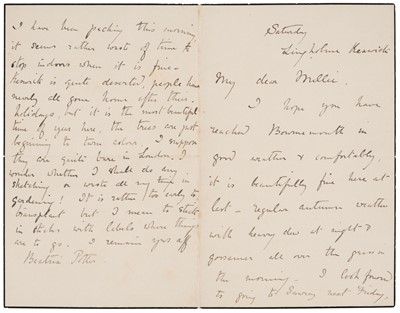 Saturday
Lingholme Keswick
My dear Millie,
I hope you have
reached Bournemouth in
good weather & comfortably,
it is beautifully fine here at
last - regular autumn weather
with heavy dew at night &
gossamer all over the grass in
the morning. I look forward
to going to Sawrey next Friday.
I have been packing this morning
it seems rather waste of time to
stop indoors when it is fine -
Keswick is quite deserted, people have
nearly all gone home after their
holidays, but it is the most beautiful
time of year here, the trees are just
beginning to turn colour. I suppose
they are quite bare in London. I
wonder whether I shall do any
sketching, or waste all my time in
gardening! It is rather too early to
transplant but I mean to stick
in sticks with labels where things
are to go. I remain yrs aff
Beatrix Potter